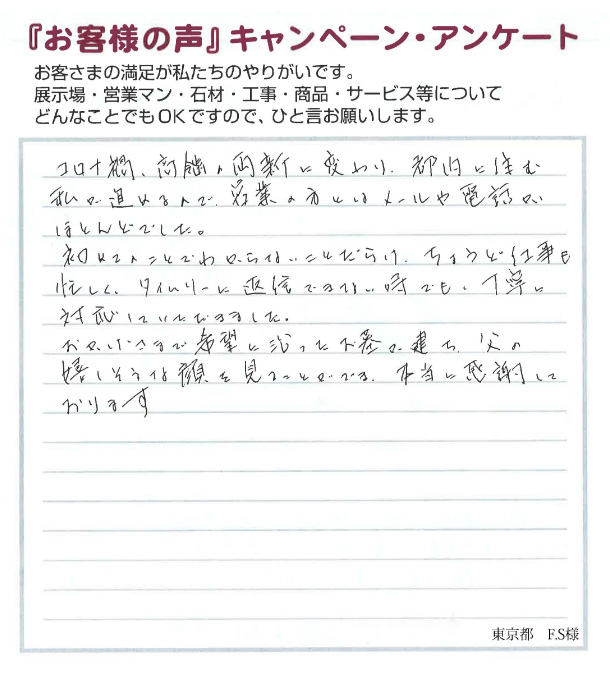 『お客様の声』キャンペーン・アンケート
お客さまの満足が私たちのやりがいです。
展示場・営業マン・石材・工事・商品・サービス等について
どんなことでもOKですので、ひと言お願いします。
コロナ禍、高齢の両親に変わり、都内に住む
私が進めるので、営業の方とはメールや電話が
ほとんどでした。
初めてのことでわからないことだらけ、ちょうど仕事も
忙しく、タイムリーに返信できない時でも、丁寧に
対応していただきました。
おかげさまで希望に沿ったお墓が建ち、父の
嬉しそうな顔を見ることができ、本当に感謝して
おります
東京都 F.S様